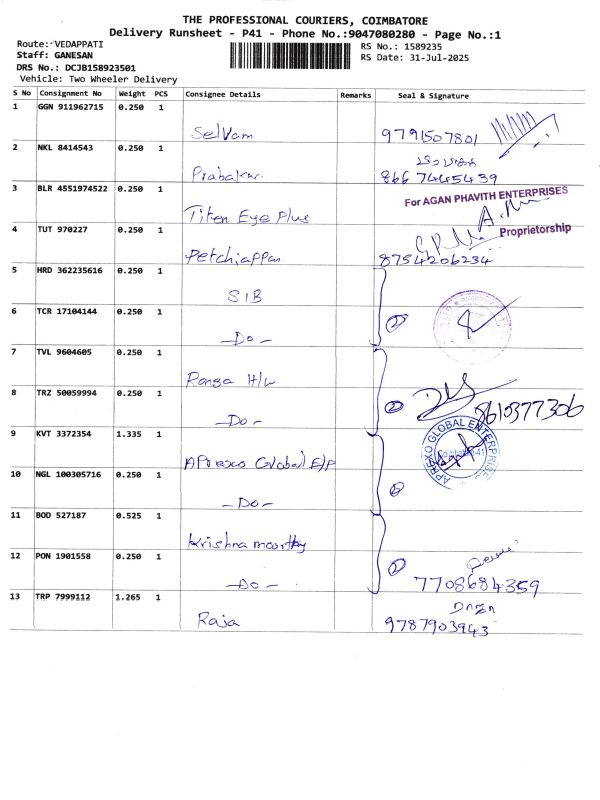 THE PROFESSIONAL COURIERS, COIMBATORE
Delivery Runsheet - P41 - Phone No.:9047080280 - Page No.:1
Route: VEDAPPATI
RS No.: 1589235
Staff: GANESAN
RS Date: 31-Jul-2025
DRS No.: DCJB158923501
Vehicle: Two Wheeler Delivery
S No Consignment No Weight PCS Consignee Details Remarks Seal & Signature
1 GGN 911962715 0.250 1
Selvam 9791507801
2 NKL 8414543 0.250 1
Prabakar. 8667445439
3 BLR 4551974522 0.250 1
For AGAN PHAVITH ENTERPRISES
Titan Eye Plus
4 TUT 970227 0.250 1
Proprietorship
Petchiappan 8754206234
5 HRD 362235616 0.250 1
SIB
6 TCR 17104144 0.250 1
-Do-
7 TVL 9604605 0.250 1
Ranga H/w
8 TRZ 50059994 0.250 1
-Do- 8610377306
9 KVT 3372354 1.335 1
APREXO GLOBAL ENTERPRISES
Coimbatore-41
Aprexo Global E/P
10 NGL 100305716 0.250 1
-Do-
11 BOD 527187 0.525 1
Krishna moorthy
12 PON 1901558 0.250 1
-Do- 7708684359
13 TRP 7999112 1.265 1
ராஜா
Raja 9787903943